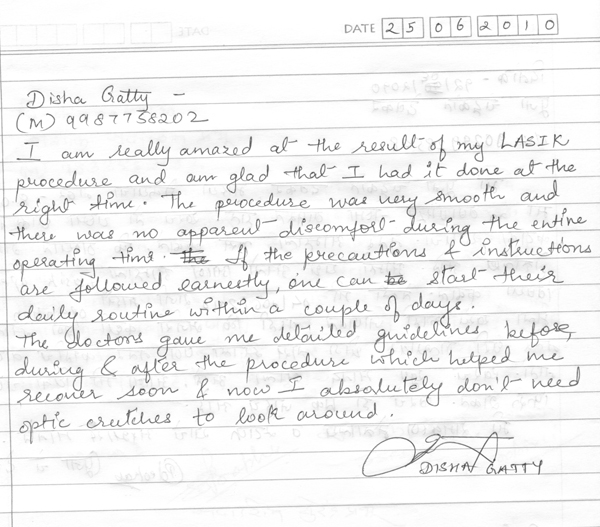 DATE 25 06 2010
Disha Gatty -
(M) 9987758202
I am really amazed at the result of my LASIK
procedure and am glad that I had it done at the
right time. The procedure was very smooth and
there was no apparent discomfort during the entire
operating time. the If the precautions & instructions
are followed earnestly, one can be start their
daily routine within a couple of days.
The doctors gave me detailed guidelines before,
during & after the procedure which helped me
recover soon & now I absolutely don't need
optic crutches to look around.
DISHA GATTY